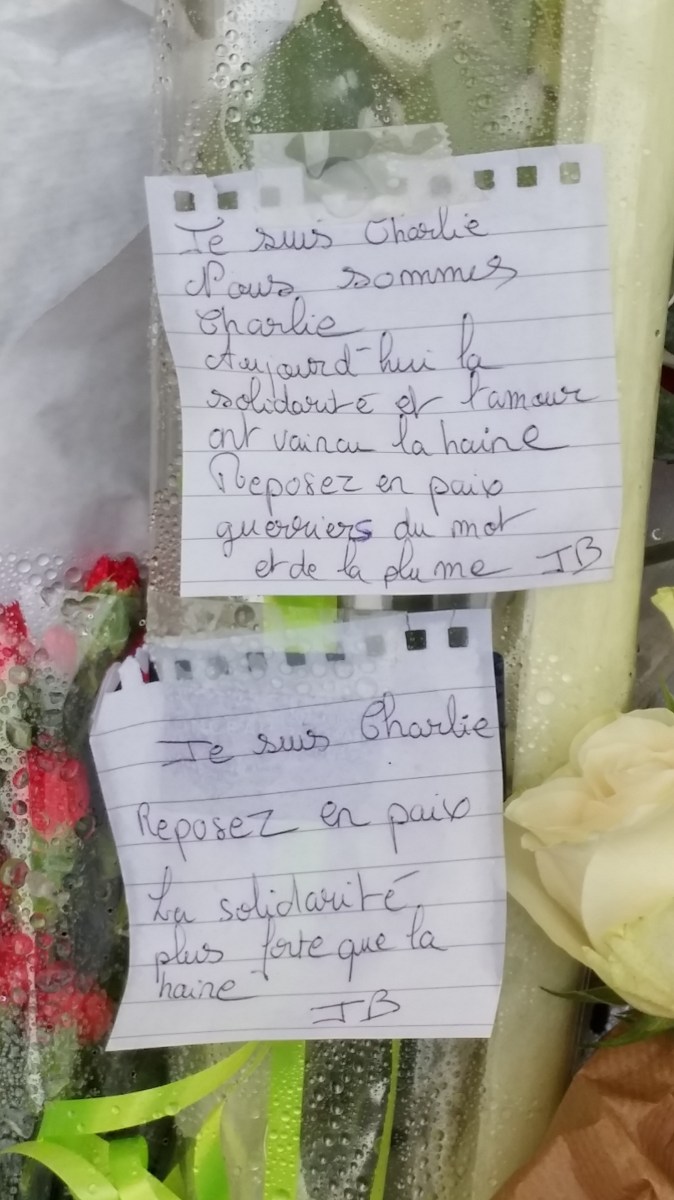 Je suis Charlie
Nous sommes
Charlie
Aujourd'hui la
solidarité et l'amour
ont vaincu la haine
Reposez en paix
guerriers du mot
et de la plume JB
Je suis Charlie
Reposez en paix
La solidarité
plus forte que la
haine
JB